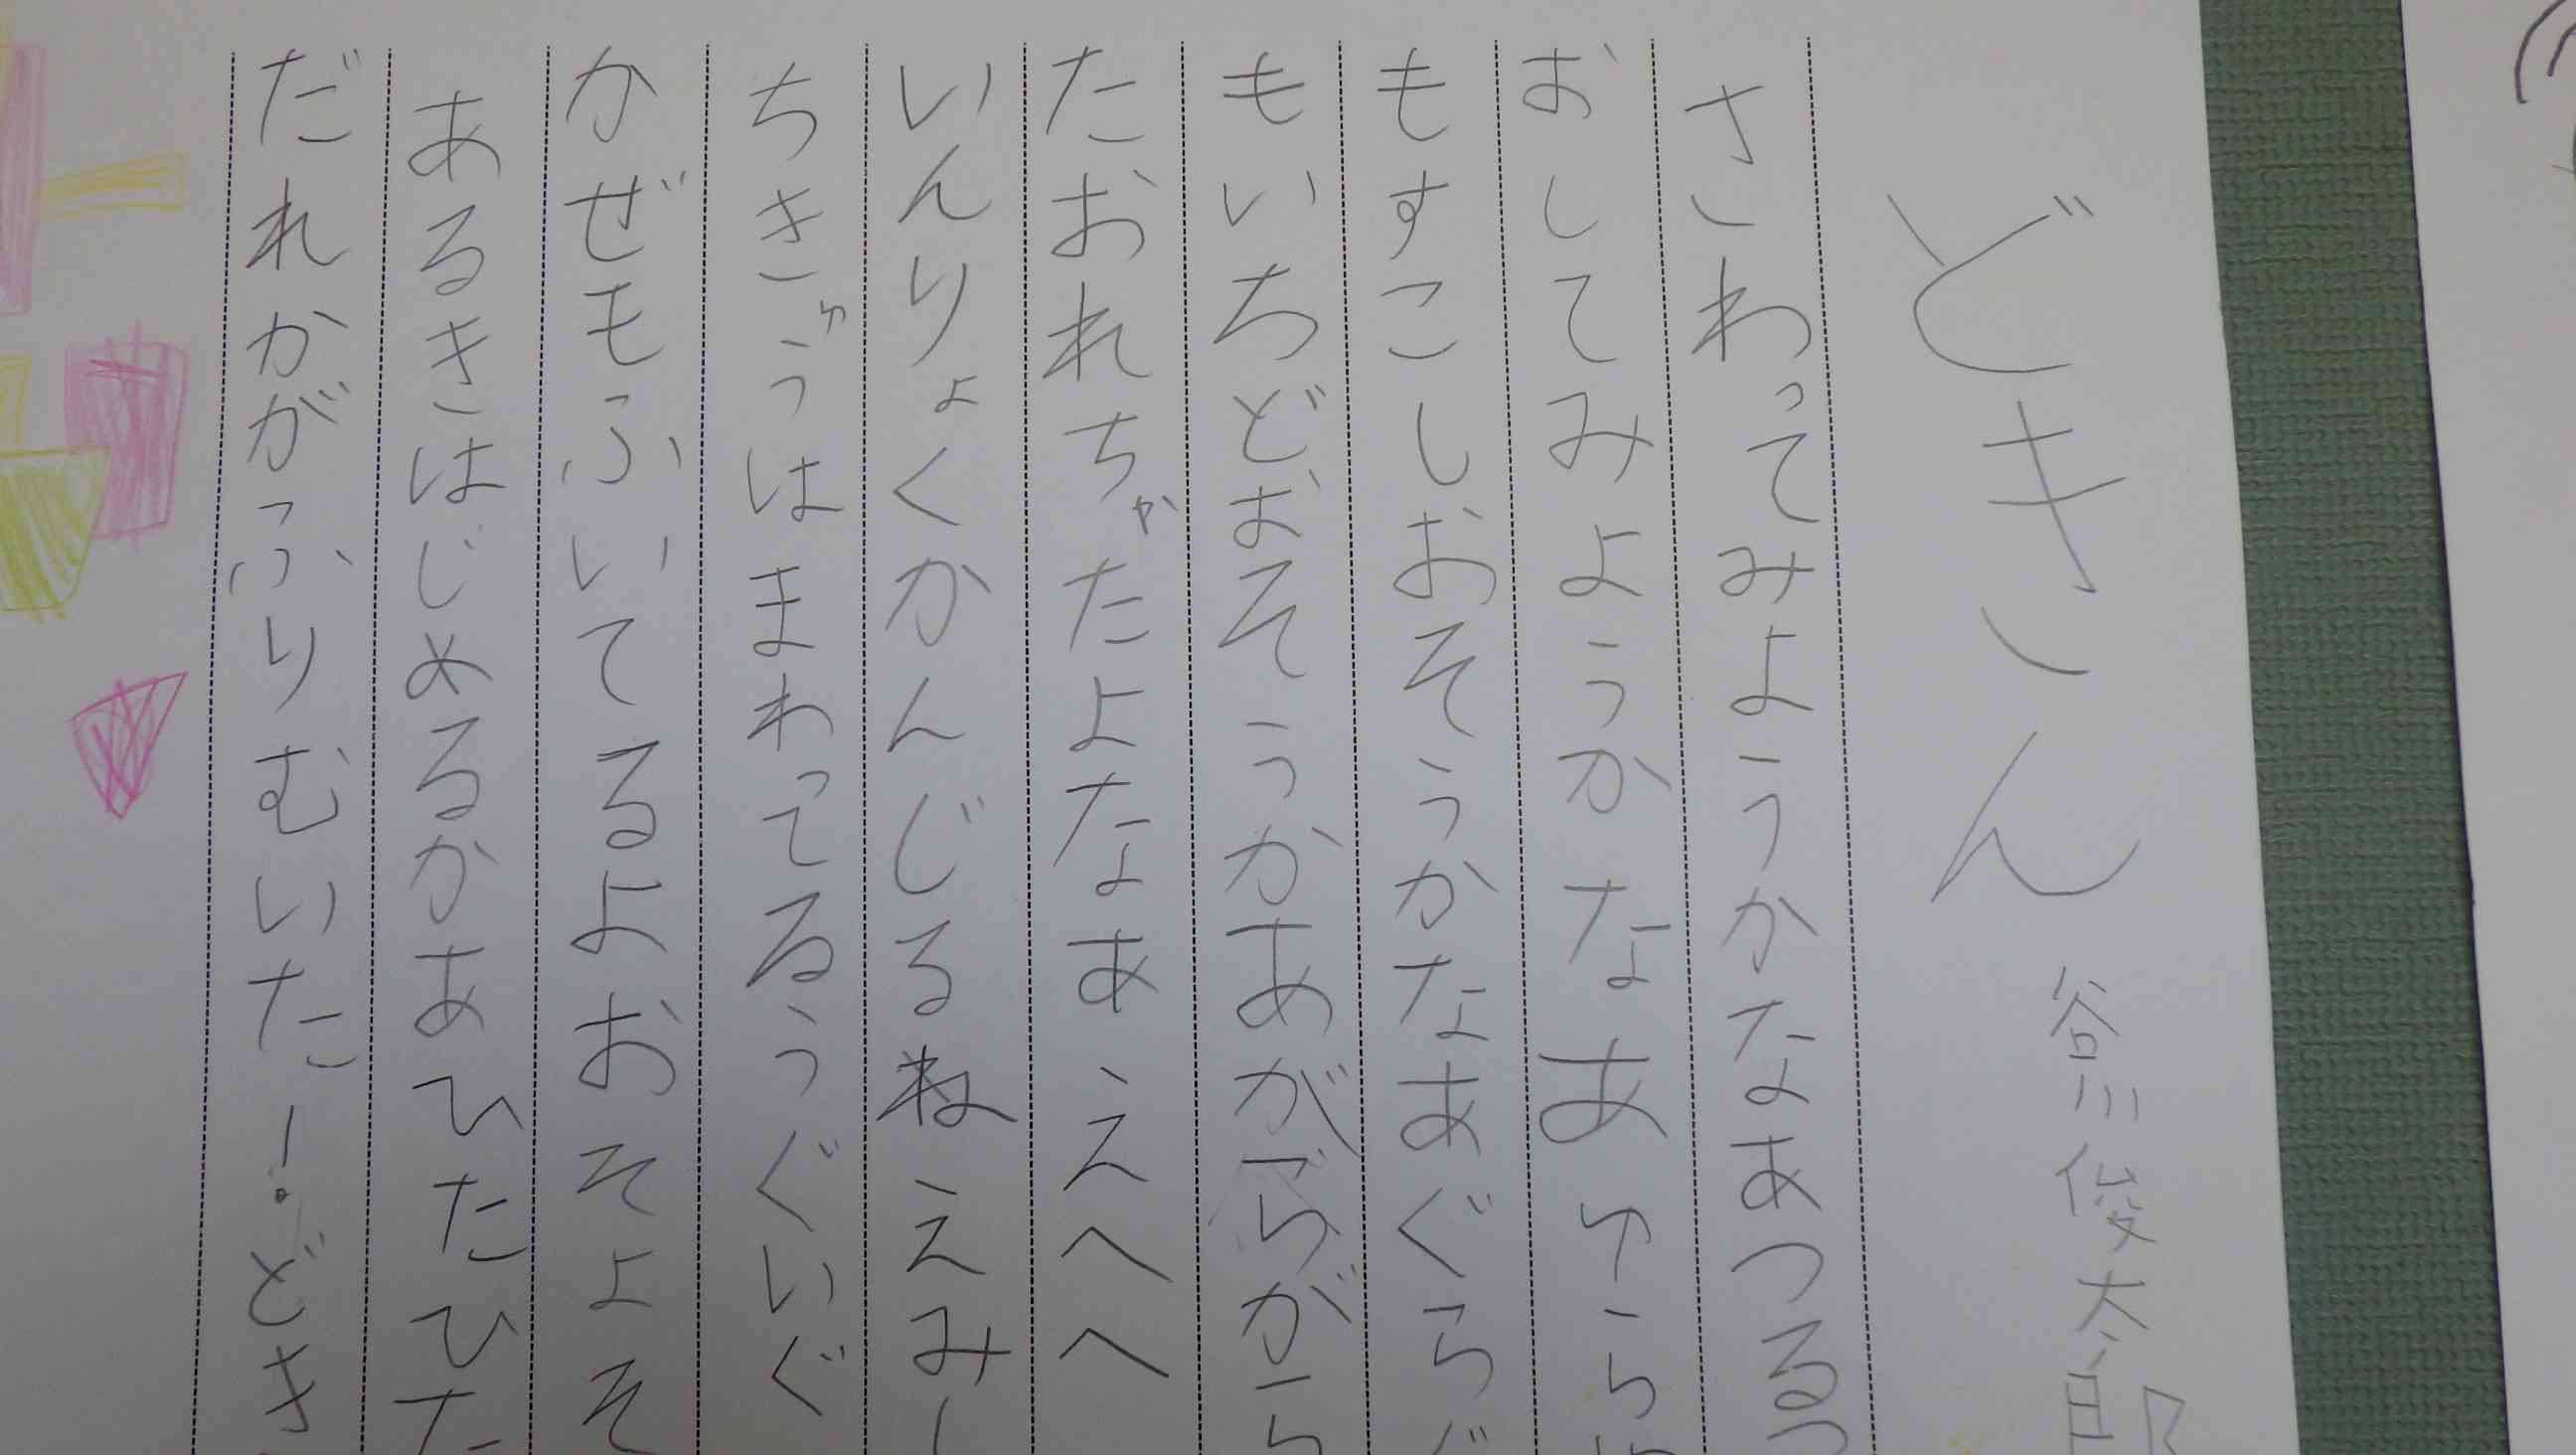 どきん
谷川俊太郎
さわってみようかなあつる
おしてみようかなあゆら
もすこしおそうかなあぐらぐ
もいちどおそうかあがらがら
たおれちゃったよなあえへへ
いんりょくかんじるねえみし
ちきゅうはまわってるうぐいぐ
かぜもふいてるよおそよそ
あるきはじめるかあひたひた
だれかがふりむいた！どき